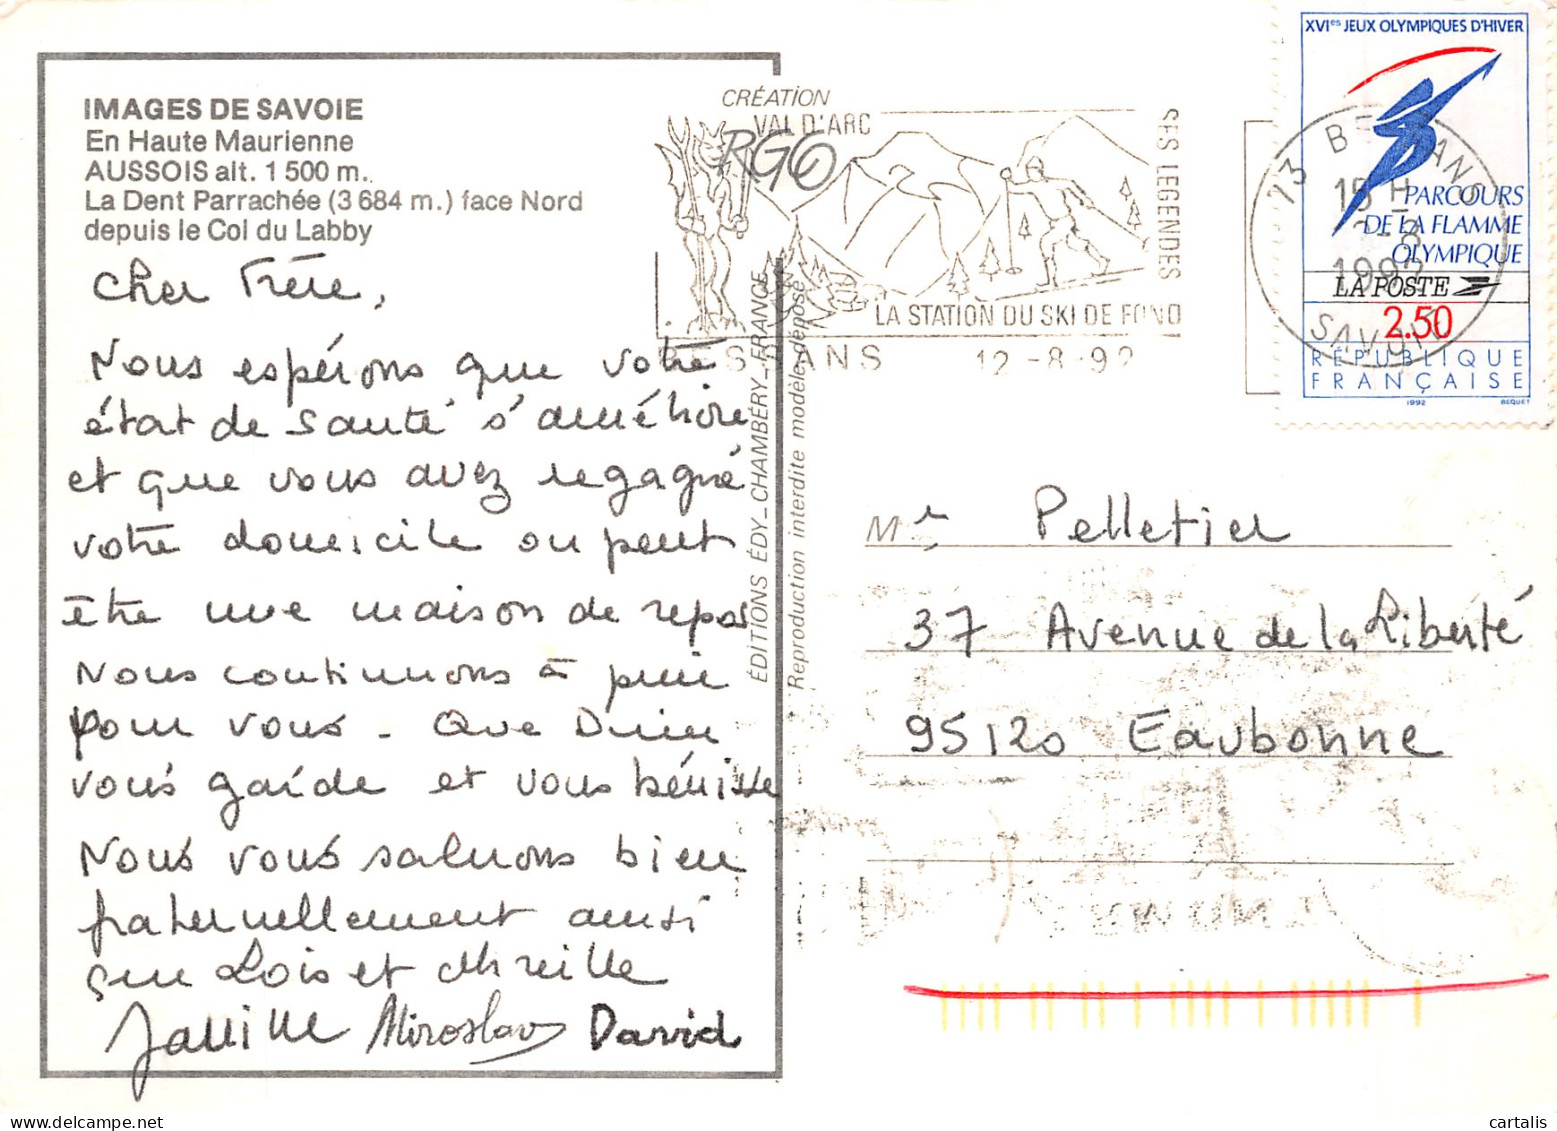 IMAGES DE SAVOIE
En Haute Maurienne
AUSSOIS alt. 1 500 m.
La Dent Parrachée (3 684 m.) face Nord
depuis le Col du Labby
Cher Frère,
Nous espérons que votre
état de santé s'améliore
et que vous avez regagné
votre domicile ou peut
être une maison de repos
Nous continuons à prier
pour vous - Que Dieu
vous garde et vous bénisse
Nous vous saluons bien
fraternellement ainsi
que Loïs et Mireille
Miroslav David
ÉDITIONS ÉDY_CHAMBÉRY_FRANCE
Reproduction interdite modèle déposé
CRÉATION
VAL D'ARC
RGO
SES LEGENDES
LA STATION DU SKI DE FOND
BESSANS 12-8-92
73 BESSANS
15 H
12-8
1992
SAVOIE
XVIes JEUX OLYMPIQUES D'HIVER
PARCOURS
DE LA FLAMME
OLYMPIQUE
LA POSTE
2.50
RÉPUBLIQUE
FRANÇAISE
1992 BEQUET
Mr Pelletier
37 Avenue de la Liberté
95120 Eaubonne
cartalis